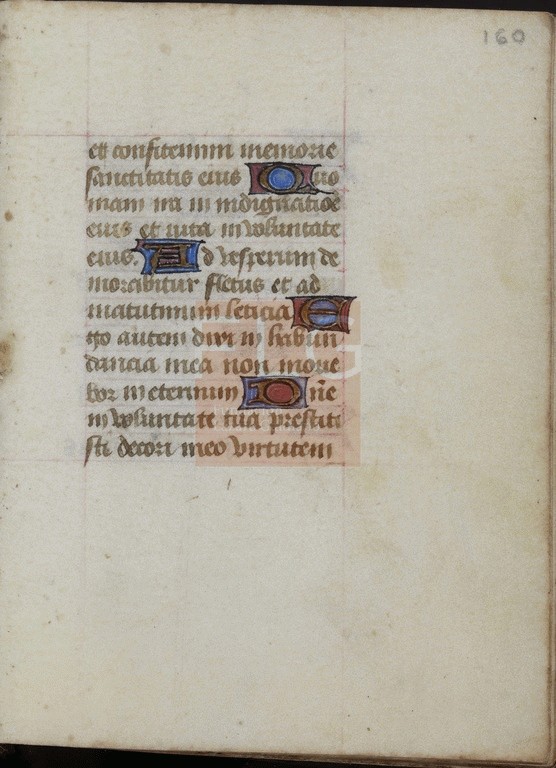 160
et confitemini memorie
sanctitatis eius Quo
niam ira in indignatioe
eius et uita in voluntate
eius. Ad vesperum de
morabitur fletus et ad
matutinum leticia E
go autem dixi in habun
dancia mea non moue
bor in eternum Dñe
in voluntate tua prestiti
sti decori meo virtutem